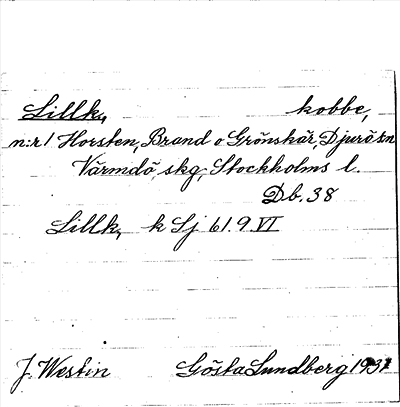 Lillk, kobbe,
n:r 1 Horsten, Brand o Grönskär, Djurö sn
Värmdö skg, Stockholms l.
Db. 38
Lillk, k Sj 61.9.VI
J. Westin Gösta Lundberg 1937